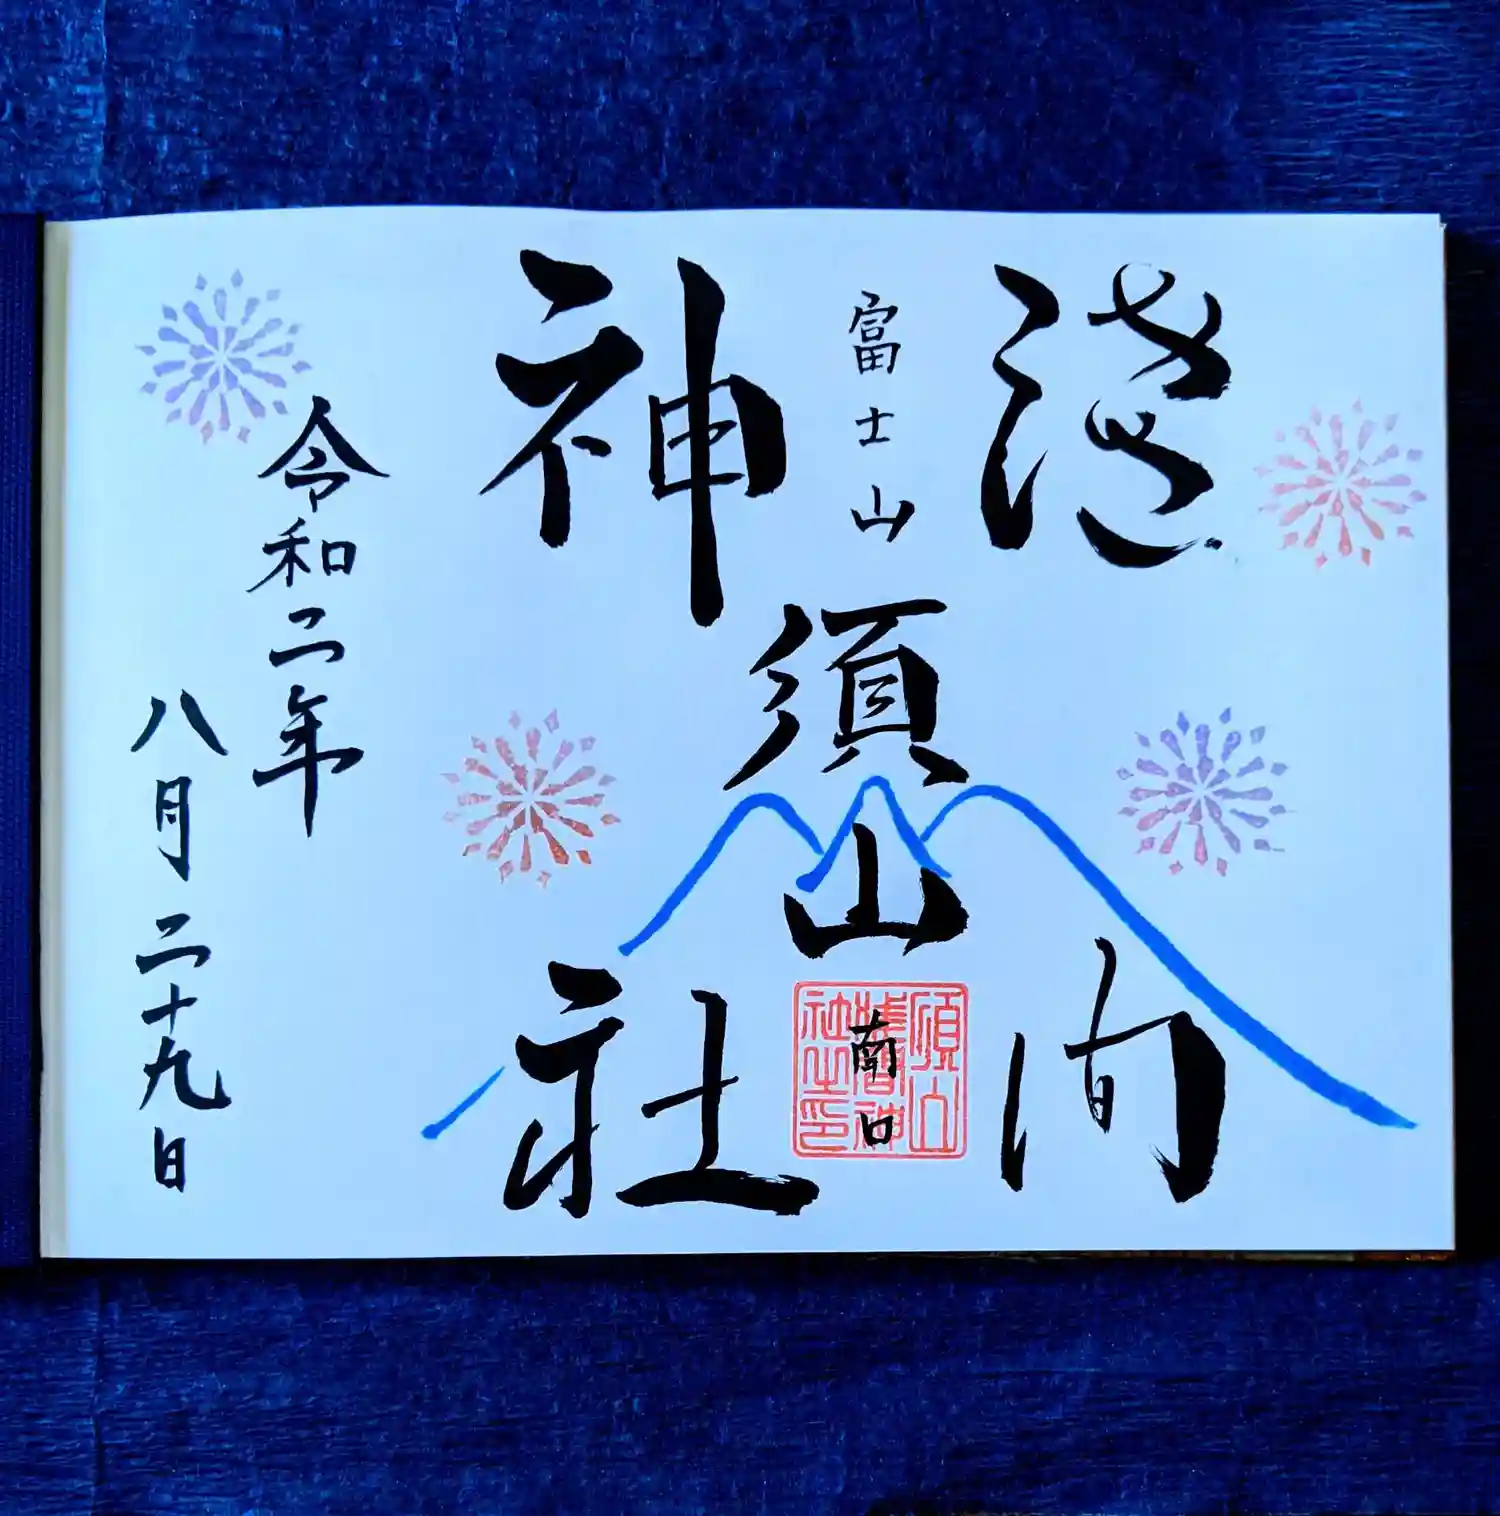 淺間
富士山
須山
南口
須山
淺間神
社之印
神社
令和二年
八月二十九日